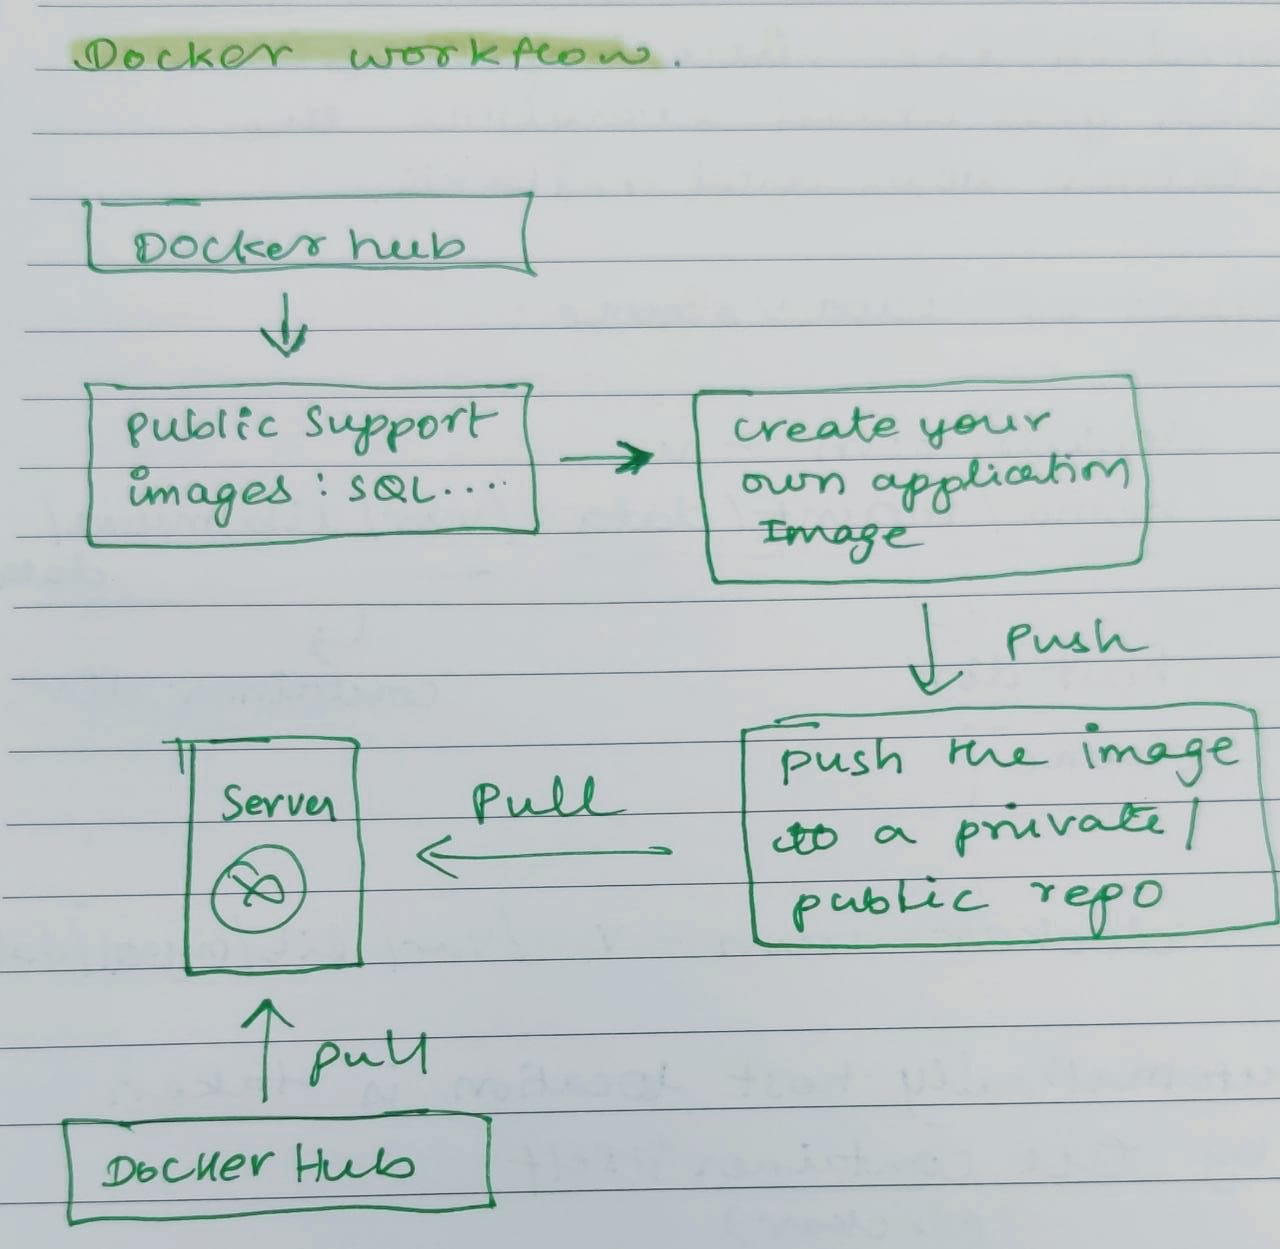 Docker workflow.
Docker hub
Public Support
images : SQL....
create your
own application
Image
Push
push the image
to a private/
public repo
Pull
Server
pull
Docker Hub